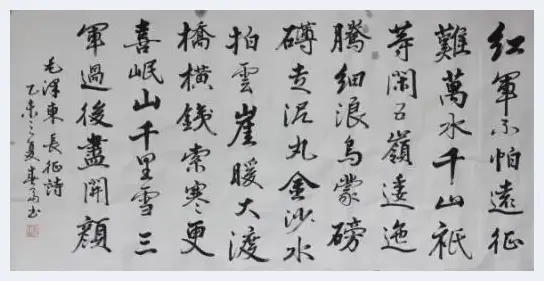 紅軍不怕遠征
難萬水千山祇
等閑五嶺逶迤
騰細浪烏蒙磅
礴走泥丸金沙水
拍雲崖暖大渡
橋橫鐵索寒更
喜岷山千里雪三
軍過後盡開顏
毛澤東長征詩
乙未之夏書